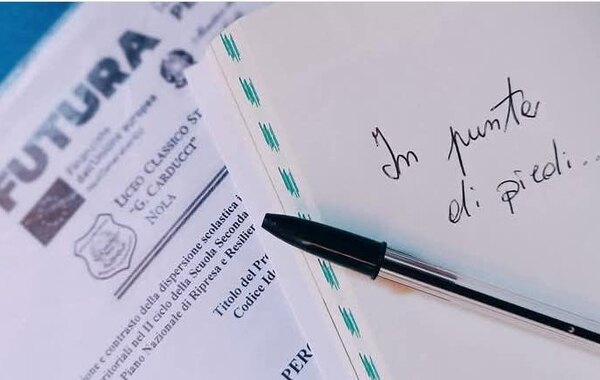 FUTURA
LA SCUOLA
Finanziato
dall'Unione europea
LICEO CLASSICO ST
"G. CARDUCCI"
NOLA
ne e contrasto della dispersione scolastica i
rritoriali nel II ciclo della Scuola Seconda
Piano Nazionale di Ripresa e Resilien
Titolo del Pro
Codice Ide
PERC
In punta
di piedi...